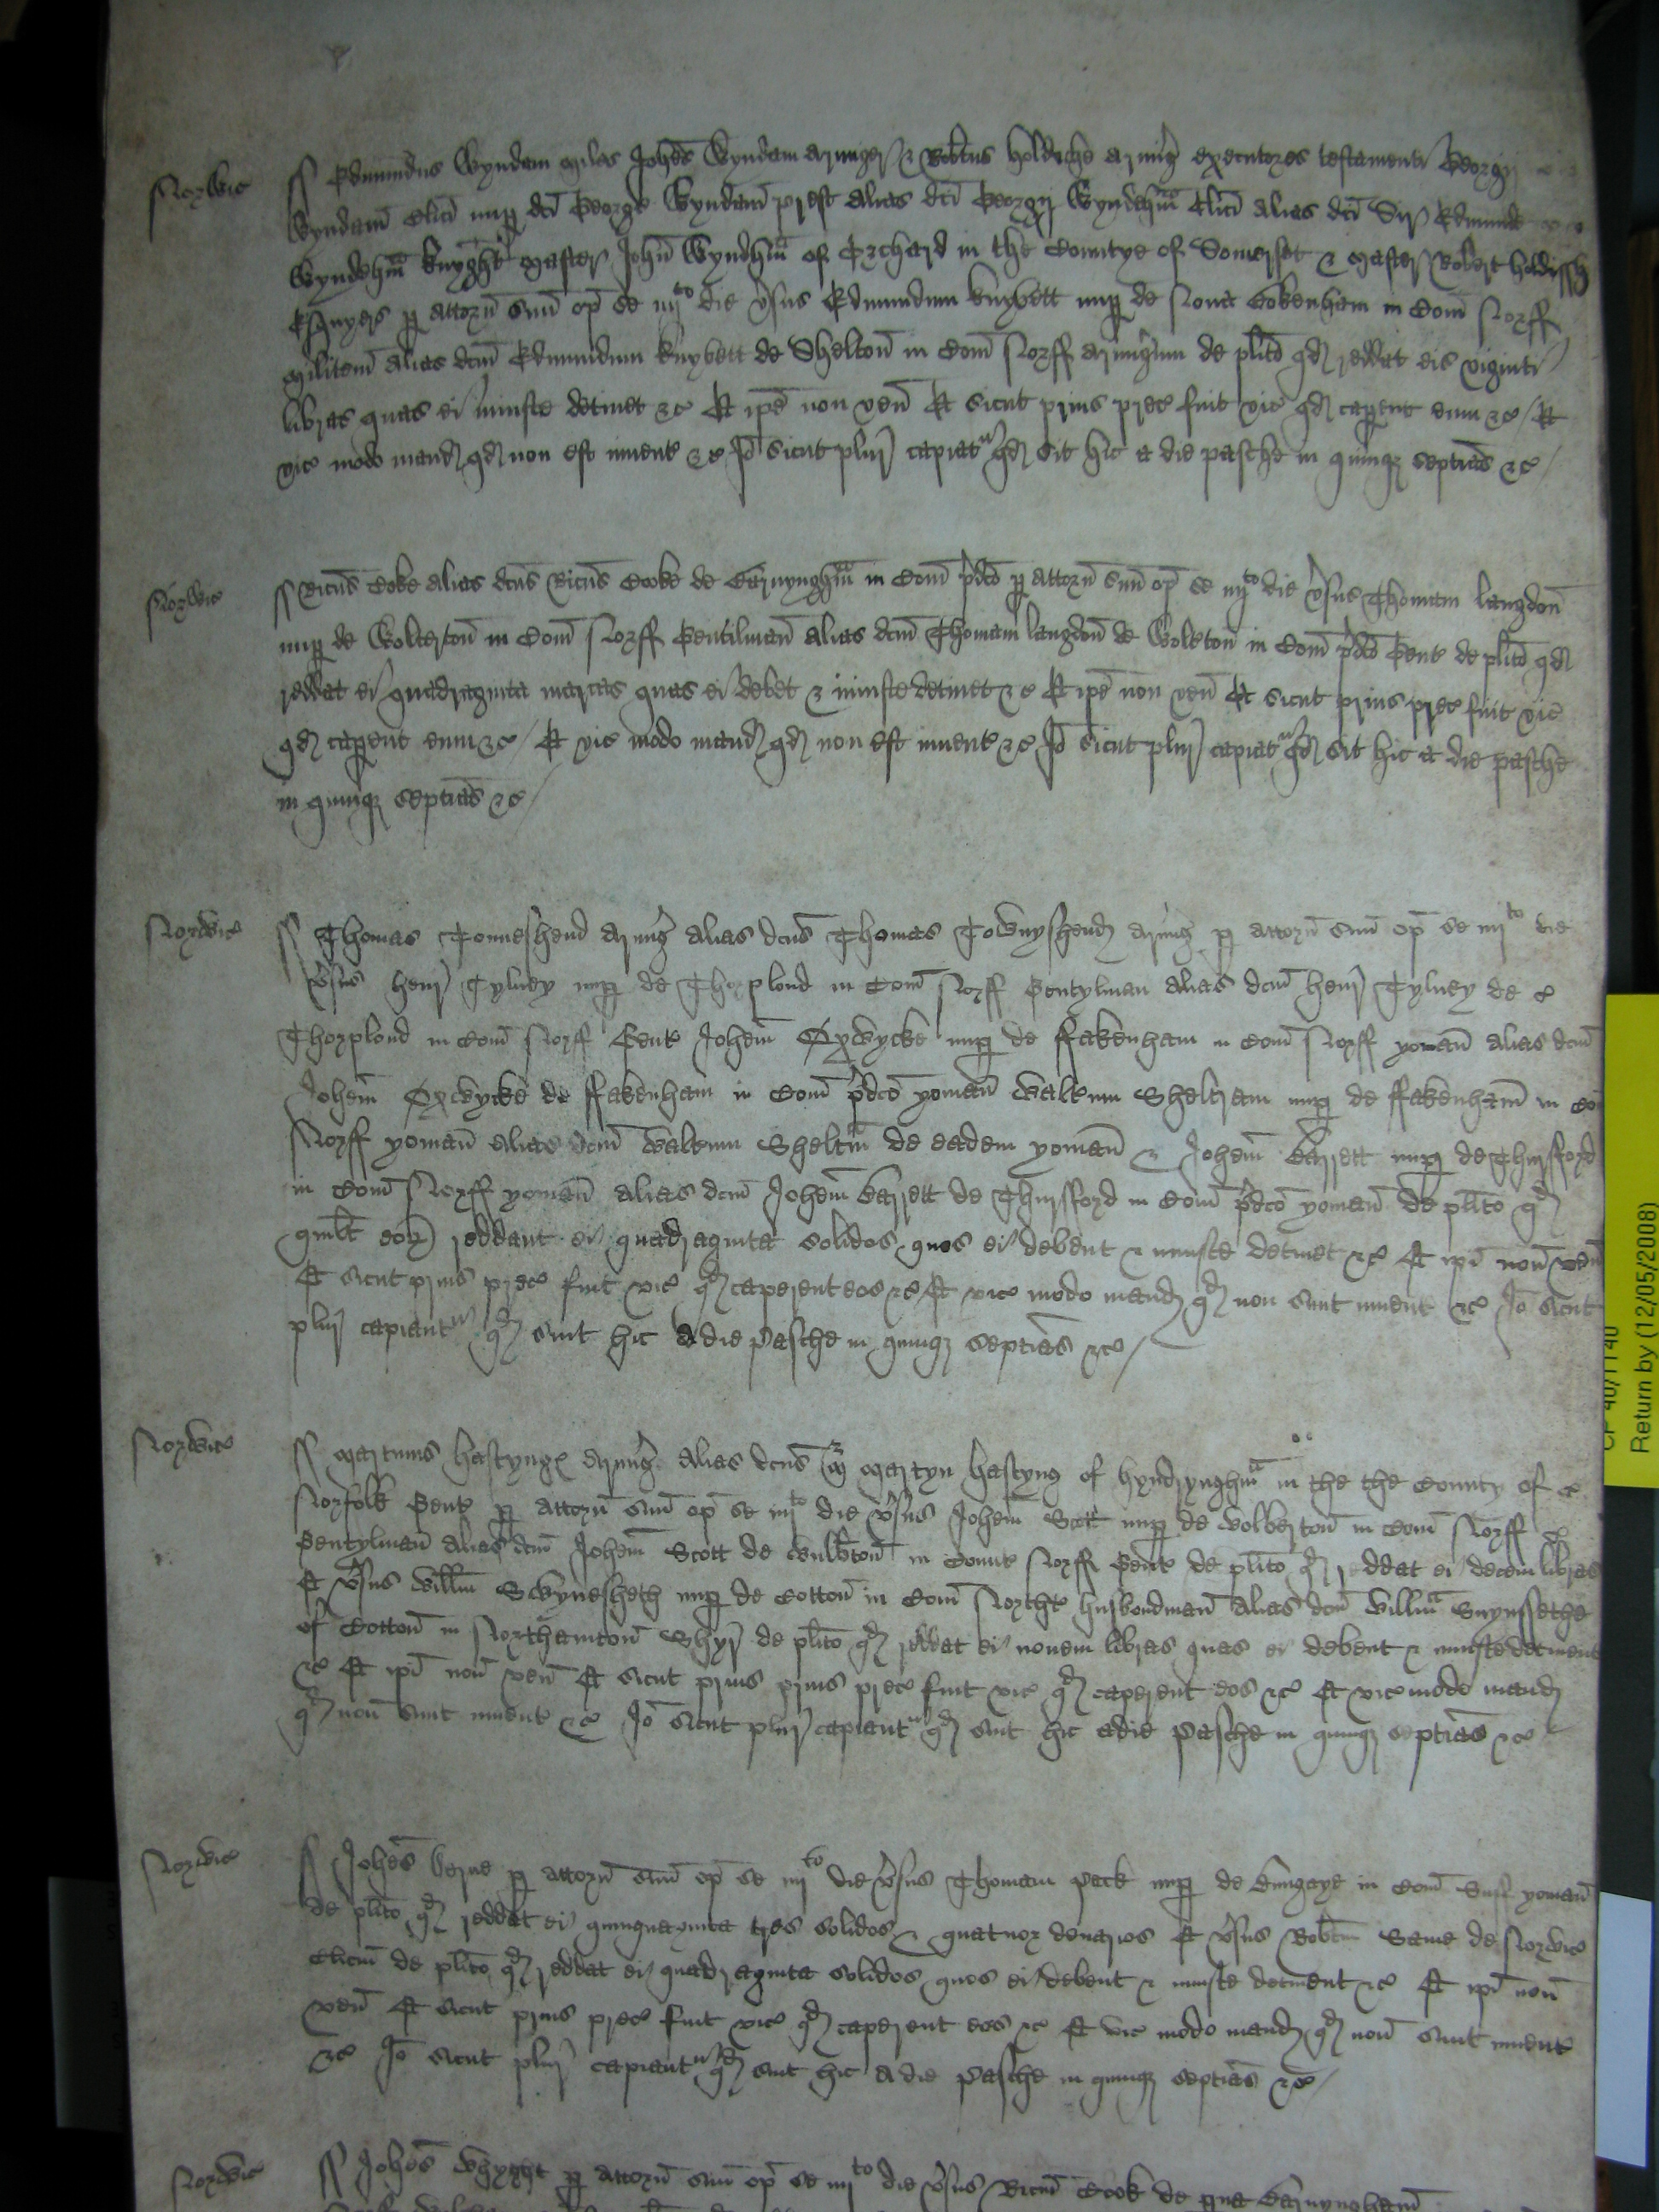 Norwic
Edmundus Wyndam miles Johes Wyndam armiger & Robtus holdiche armig executores testamenti Georgij
Wyndam clici nup dci George Wyndam prest alias dci Georgij Wyndehm clici alias dci Sir Edmunde
Wyndehm knyght master John Wyndhm of Orchard in the Countye of Somerset & master Robert holdissh
Esquyers p attorn suu op se iiijto die vsus Edmundum knyvett nup de Nova Bokenham in Com Norff
militem alias dcm Edmundum knyvett de Shelton in Com Norff armigum de plito qd reddat eis viginti
libras quas ei iniuste detinet &c Et ipe non ven Et sicut prius prec fuit vic qd caperent eum &c / Et
vic modo mand qd non est invent &c Io sicut plur capiatur qd sit hic a die pasche in quinq septias &c /
Norwic
Ricus Coke alias dcus Ricus Cooke de in Com pdco p attorn suu op se iiijto die vsus Thomam langdon
nup de Wolterton in Com Norff Gentilman alias dcm Thomam langdon de Wolteton in Com pdco Gent de plito qd
reddat ei quadraginta marcas quas ei debet & iniuste detinet &c Et ipe non ven Et sicut prius prec fuit vic
qd caperent eum &c / Et vic modo mand qd non est invent &c Io sicut plur capiatur qd sit hic a die pasche
in quinq septias &c /
Norwic
Thomas Touneshend armig alias dcus Thomas Townyshend armig p attorn suu op se iiijto die
vsus henr Tylney nup de Thorplond in Com Norff Gentylman alias dcm henr Tylney de
Thorplond in Com Norff Gent Johem Oxwycke nup de ffakenham in Com Norff yoman alias dcm
Johem Oxwycke de ffakenham in Com pdco yoman Waltum Sheltram nup de ffakenham in Co
Norff yoman alias dcm Waltum Sheltm de eadem yoman & Johem Barrett nup de Thursford
in Com Norff yoman alias dcm Johem Barrett de Thursford in Com pdco yoman de plito qd
quilt eor reddant ei quadraginta solidos quos ei debent & iniuste detinet &c Et ipi non ven
Et sicut prius prec fuit vic qd caperent eos &c Et vic modo mand qd non sunt invent &c Io sicut
plur capiantur qd sint hic A die Pasche in quinq septias &c /
Norwic
Martinus hastyngs armig alias dcus Martyn hastyng of hyndrynghm in the the County of
Norfolk Gent p attorn suu op se iiijto die vsus Johem Scott nup de Wolverton in Com Norff
Gentylman alias dcm Johem Scott de Wulvton in Comit Norff Gent de plito qd reddat ei decem libras
Et vsus Willm Swynesheth nup de Cotton in Com Northt husbondman alias dcm Willm Swynssethe
of Cotton in Northamton Shyr de plito qd reddat ei novem libras quas ei debent & iniuste detinent
&c Et ipi non ven Et sicut prius prius prec fuit vic qd caperent eos &c Et vic modo mand
qd non sunt invent &c Io sicut plur capiantur qd sint hic a die Pasche in quinq septias &c
Norwic
Johes Berne p attorn suu op se iiijto die vsus Thomam Pack nup de Bungaye in Com Suff yoman
de plito qd reddat ei quinquaginta tres solidos & quatuor denarios Et vsus Robtm Same de Norwic
Clicum de plito qd reddat ei quadraginta solidos quos ei debent & iniuste detinent &c Et ipi non
ven Et sicut prius prec fuit vic qd caperent eos &c Et vic modo mand qd non sunt invent
&c Io sicut plur capiantur qd sint hic A die Pasche in quinq septias &c /
Norwic
Johes Whyght p attorn suu op se iiijto die vsus Ricum Cook de
CP 40/1140
Return by (12/05/2008)